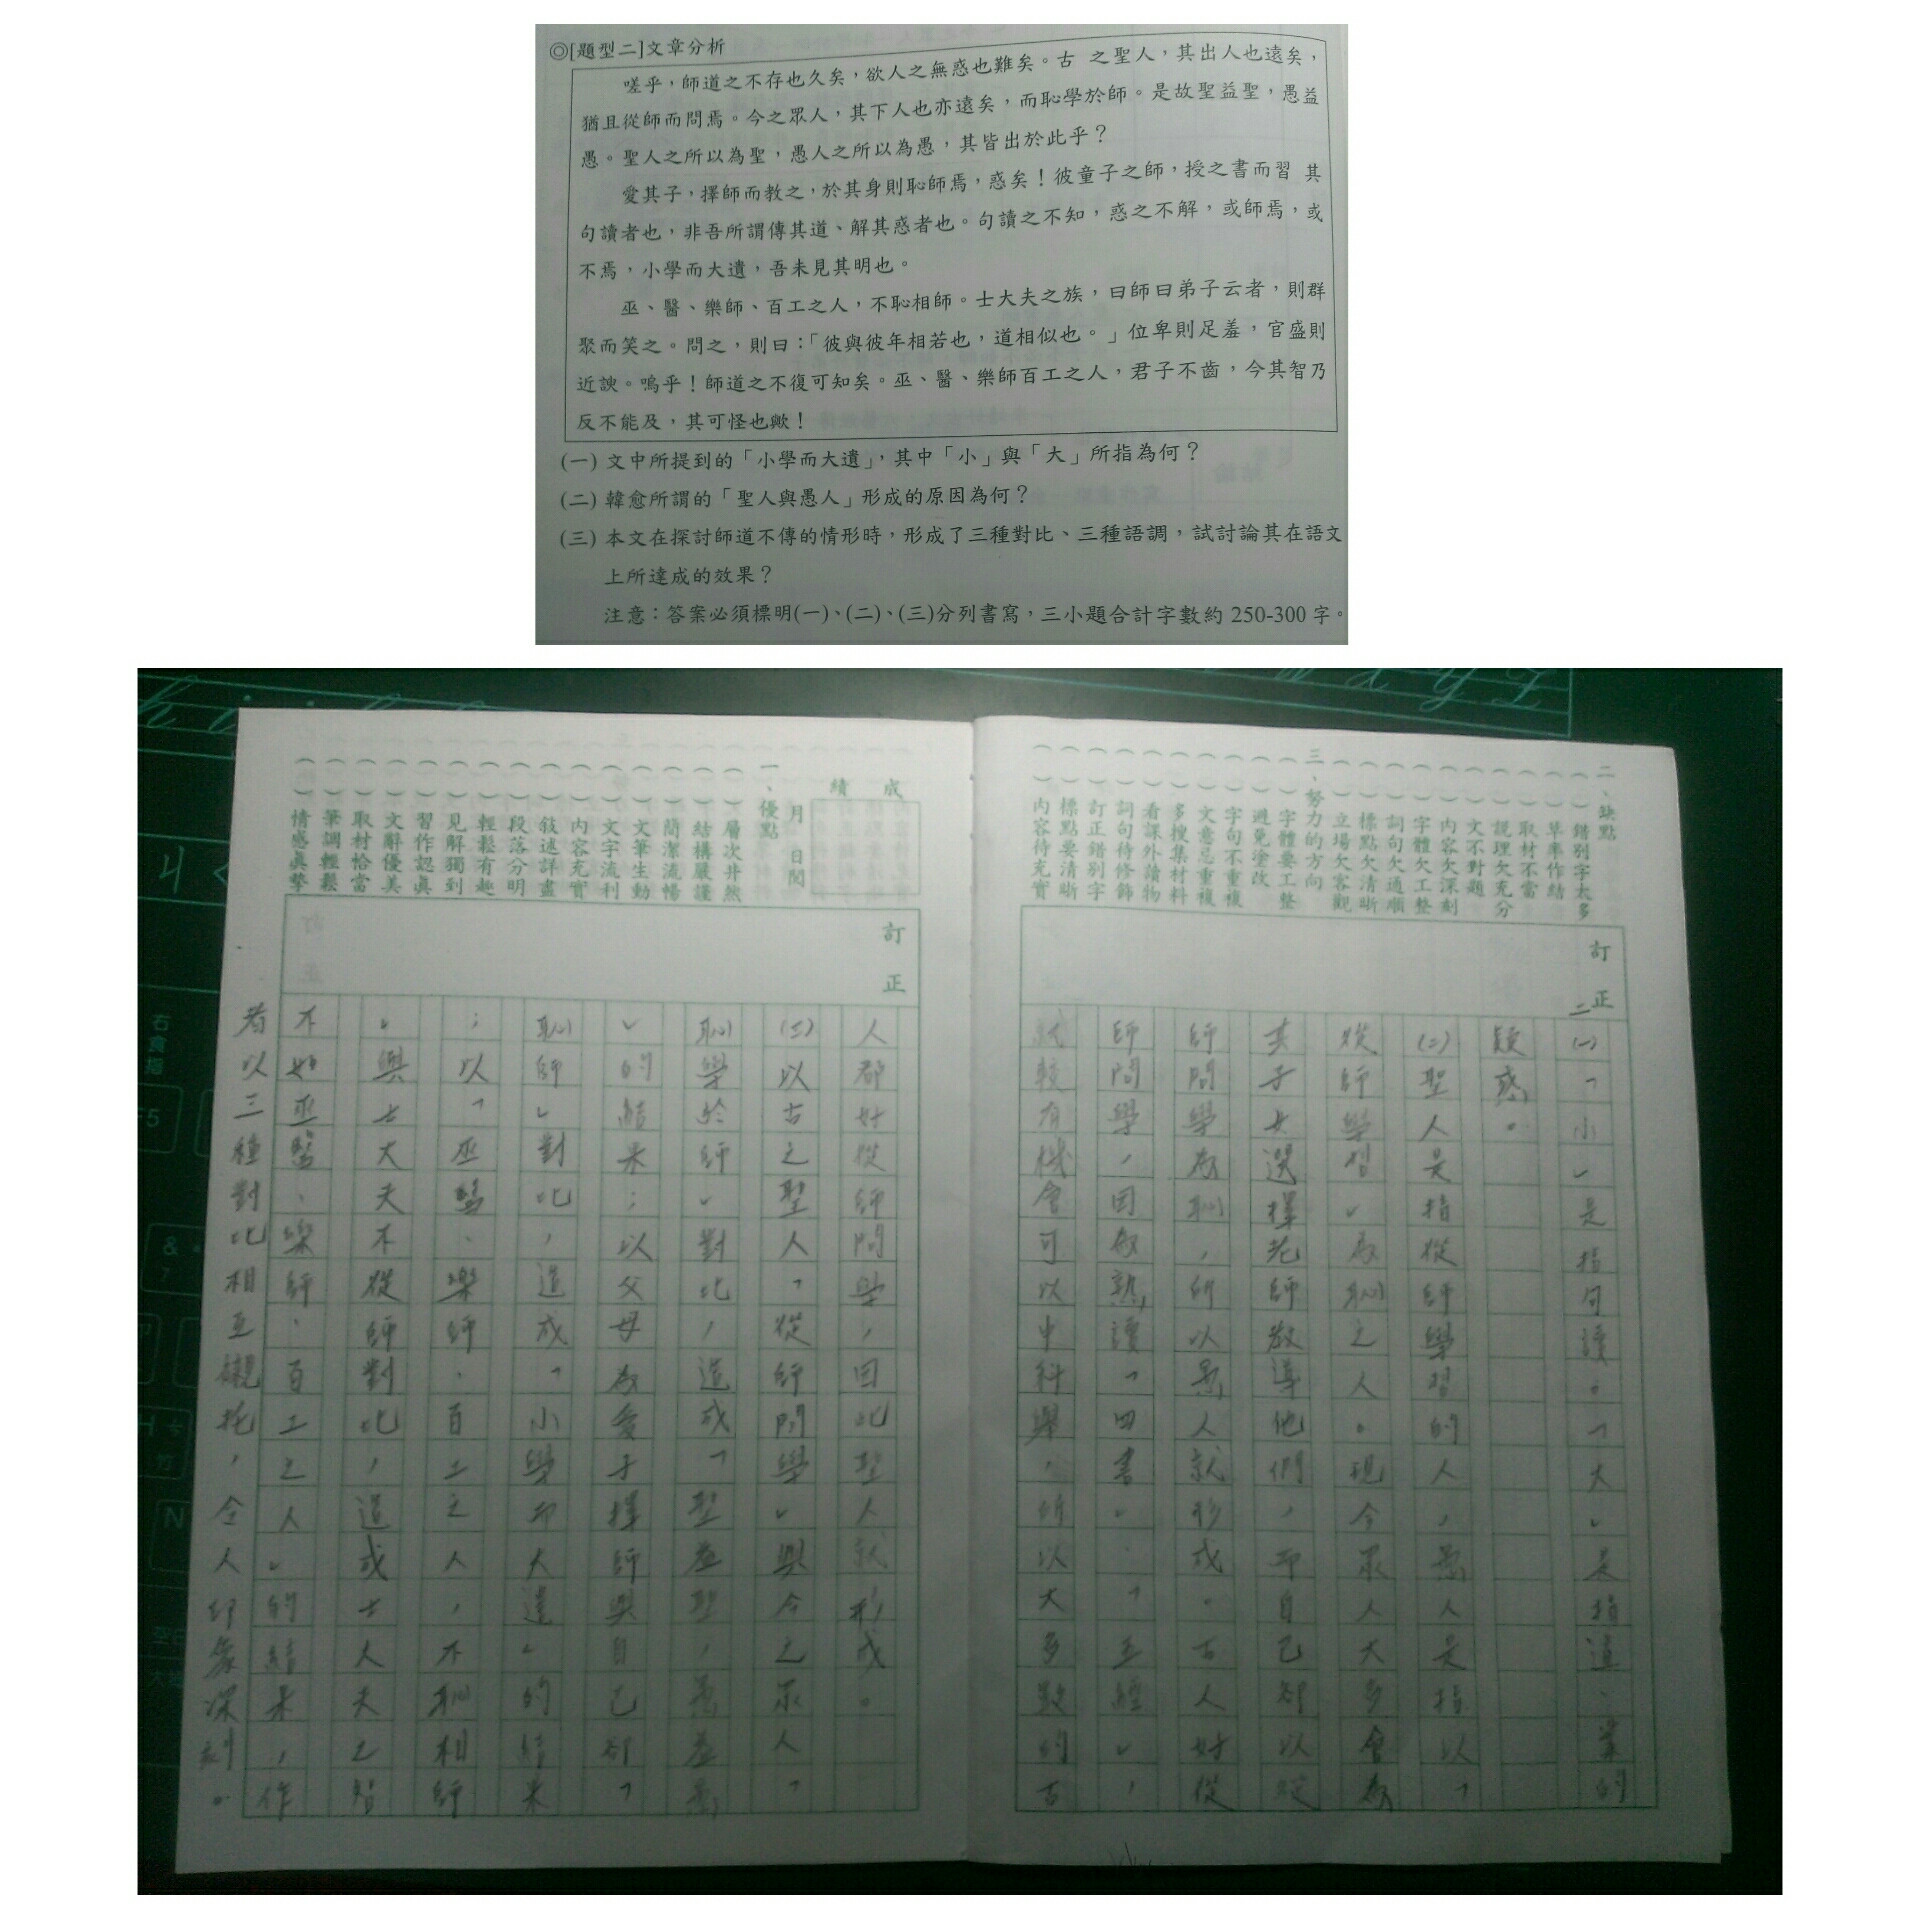 ◎[題型二]文章分析
嗟乎，師道之不存也久矣，欲人之無惑也難矣。古 之聖人，其出人也遠矣，
猶且從師而問焉。今之眾人，其下人也亦遠矣，而恥學於師。是故聖益聖，愚益
愚。聖人之所以為聖，愚人之所以為愚，其皆出於此乎？
愛其子，擇師而教之，於其身則恥師焉，惑矣！彼童子之師，授之書而習 其
句讀者也，非吾所謂傳其道、解其惑者也。句讀之不知，惑之不解，或師焉，或
不焉，小學而大遺，吾未見其明也。
巫、醫、樂師、百工之人，不恥相師。士大夫之族，曰師曰弟子云者，則群
聚而笑之。問之，則曰：「彼與彼年相若也，道相似也。」位卑則足羞，官盛則
近諛。嗚乎！師道之不復可知矣。巫、醫、樂師百工之人，君子不齒，今其智乃
反不能及，其可怪也歟！
(一) 文中所提到的「小學而大遺」，其中「小」與「大」所指為何？
(二) 韓愈所謂的「聖人與愚人」形成的原因為何？
(三) 本文在探討師道不傳的情形時，形成了三種對比、三種語調，試討論其在語文
上所達成的效果？
注意：答案必須標明(一)、(二)、(三)分列書寫，三小題合計字數約 250-300 字。
二、缺點
( ) 錯別字太多
( ) 草率作結
( ) 取材不當
( ) 說理欠充分
( ) 文不對題
( ) 內容欠深刻
( ) 字體欠工整
( ) 詞句欠通順
( ) 標點欠清晰
( ) 立場欠客觀
三、努力的方向
( ) 字體要工整
( ) 避免塗改
( ) 字句不重複
( ) 文意忌重複
( ) 多搜集材料
( ) 看課外讀物
( ) 詞句待修飾
( ) 訂正錯別字
( ) 標點要清晰
( ) 內容待充實
訂正
二
(一)「小」是指句讀。「大」是指道、業的
疑惑。
(二)聖人是指從師學習的人，愚人是指以「
從師學習」為恥之人。現今眾人大多會為
其子女選擇老師教導他們，而自己卻以從
師問學為恥，所以愚人就形成。古人好從
師問學，因為熟讀「四書」、「五經」，
就較有機會可以中科舉，所以大多數的古
成績
月 日閱
一、優點
( ) 層次井然
( ) 結構嚴謹
( ) 簡潔流暢
( ) 文筆生動
( ) 文字流利
( ) 內容充實
( ) 敘述詳盡
( ) 段落分明
( ) 輕鬆有趣
( ) 見解獨到
( ) 習作認真
( ) 文辭優美
( ) 取材恰當
( ) 筆調輕鬆
( ) 情感真摯
訂正
人都好從師問學，因此聖人就形成。
(三)以古之聖人「從師問學」與今之眾人「
恥學於師」對比，造成「聖益聖，愚益愚
」的結果；以父母為愛子擇師與自己卻「
恥師」對比，造成「小學而大遺」的結果
；以「巫醫、樂師、百工之人，不恥相師
」與士大夫不從師對比，造成士人夫之智
不如巫醫、樂師、百工之人」的結果，作
者以三種對比相互襯托，令人印象深刻。